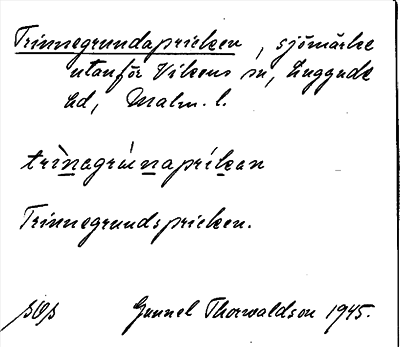 Trinnegrundapricken, sjömärke
utanför Vikens sn, Luggude
hd, Malm. l.
trìnegrùnapríkan
Trinnegrundspricken.
Gunnel Thorwaldson 1945.